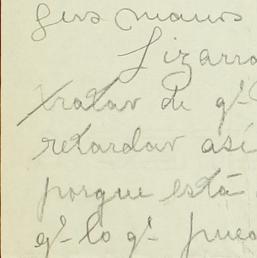 sus manos
Lizarra
tratar de q'
retardar así
porque está
q' lo q' pued